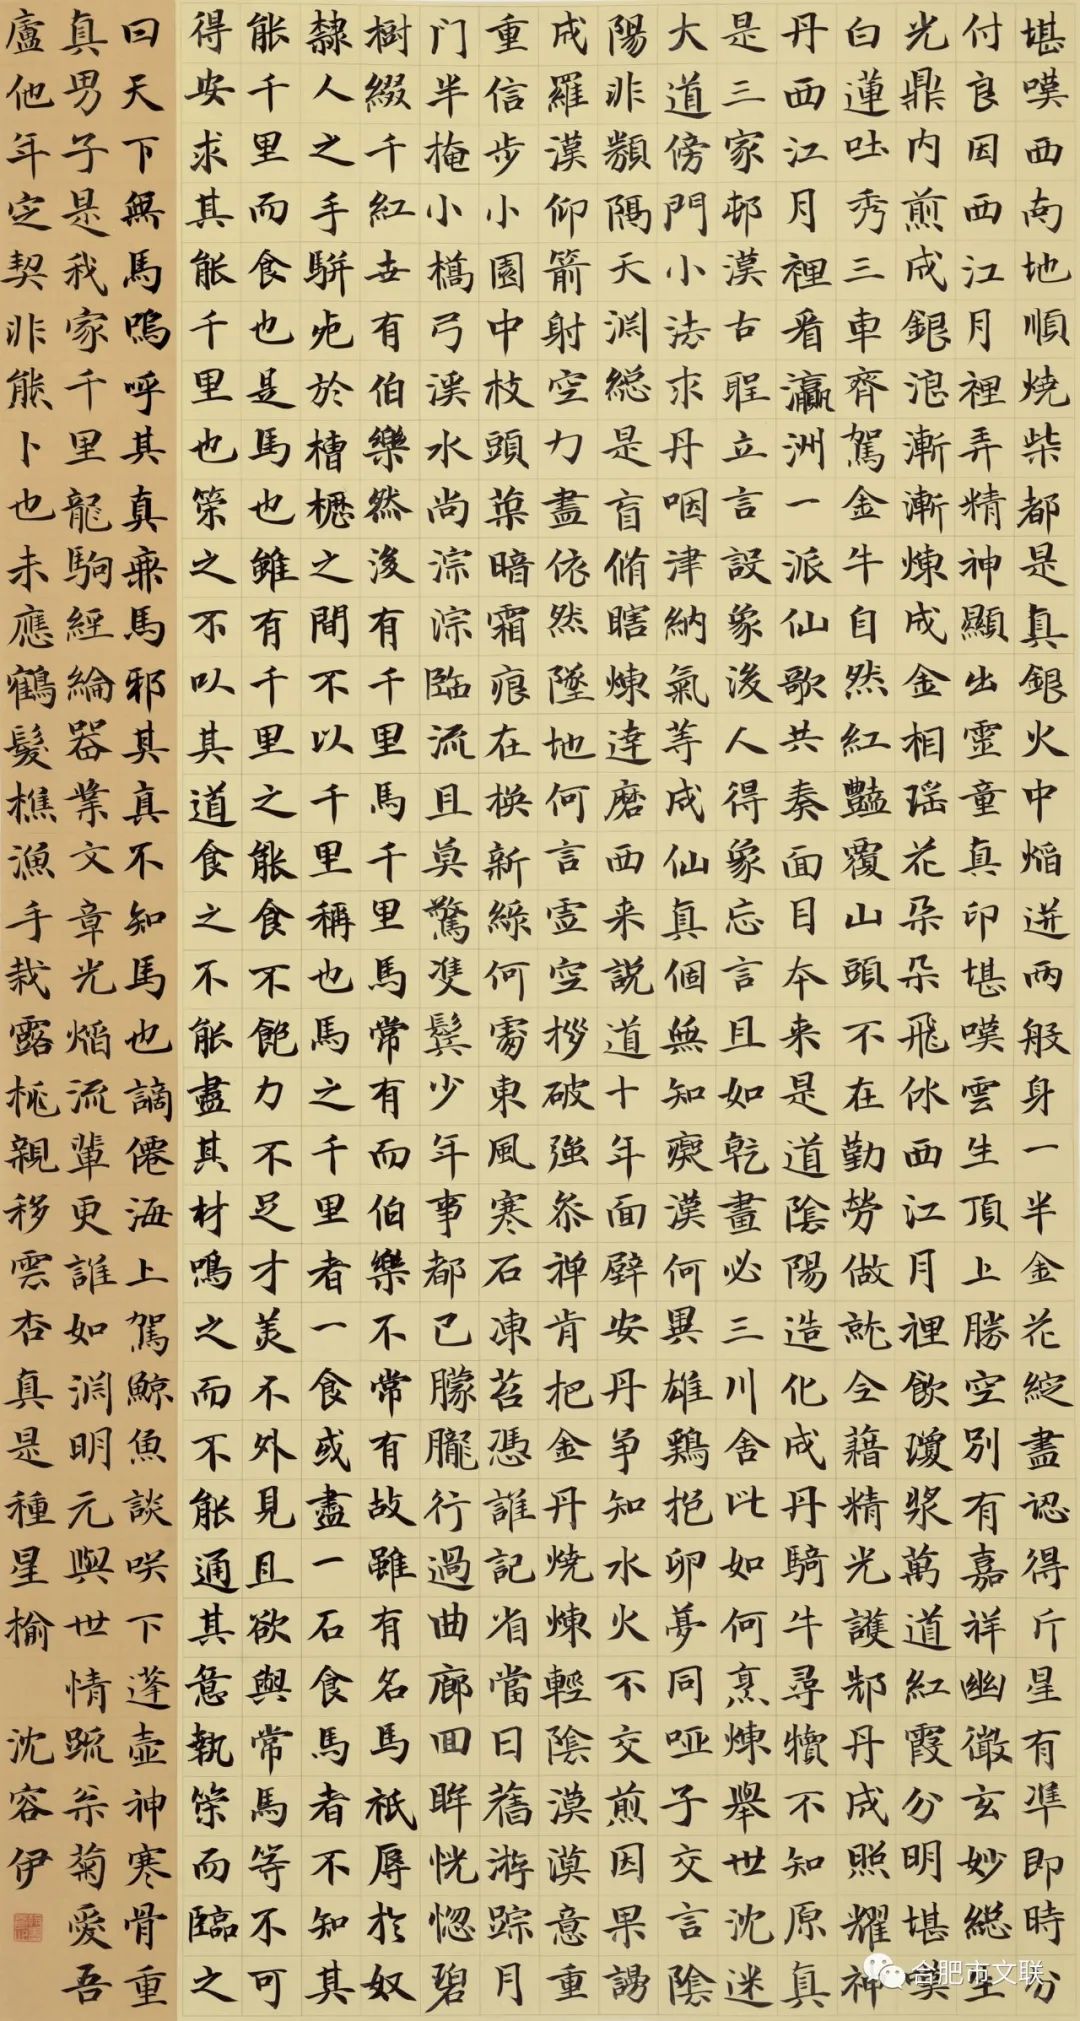 堪嘆西南地順燒柴都是真銀火中焰迸兩般身一半金花綻盡認得斤星有準即時分
付良因西江月裡弄精神顯出靈童真印堪嘆雲生頂上勝空別有嘉祥幽微玄妙總生
光鼎內煎成銀浪漸漸煉成金相瑤花朵朵飛休西江月裡飲瓊漿萬道紅霞分明堪嘆
白蓮吐秀三車齊駕金牛自然紅豔覆山頭不在勤勞做就全藉精光護郄丹成照耀神
丹西江月裡看瀛洲一派仙歌共奏面目本来是道陰陽造化成丹騎牛尋犢不知原真
是三家邨漢古聖立言設象後人得象忘言且如乾畫必三川舍比如何烹煉舉世沈迷
大道傍門小法求丹咽津納氣等成仙真個無知癡漢何異雄鷄抱卵夢同啞子交言陰
陽非類隔天淵總是盲脩瞎煉達磨西来說道十年面壁安丹爭知水火不交煎因果謁
成羅漢仰箭射空力盡依然墜地何言靈空拶破強参禅肯把金丹燒煉輕陰漠漠意重
重信步小園中枝頭葉暗霜痕在換新綠何處東風寒石凍苔憑誰記省當日舊游踪月
门半掩小橋弓溪水尚淙淙臨流且莫驚雙鬓少年事都已朦朧行過曲廊回眸恍惚碧
樹綴千紅世有伯樂然後有千里馬千里馬常有而伯樂不常有故雖有名馬祇辱於奴
隸人之手駢死於槽櫪之間不以千里稱也馬之千里者一食或盡一石食馬者不知其
能千里而食也是馬也雖有千里之能食不飽力不足才美不外見且欲與常馬等不可
得安求其能千里也策之不以其道食之不能盡其材鳴之而不能通其意執策而臨之
曰天下無馬嗚呼其真無馬邪其真不知馬也謫僊海上駕鯨魚談咲下蓬壺神寒骨重
真男子是我家千里龍駒經綸器業文章光焰流輩更誰如淵明元與世情疏采菊愛吾
廬他年定契非熊卜也未應鶴髮樵漁手栽露桃親移雲杏真是種星榆 沈容伊
合肥市文联